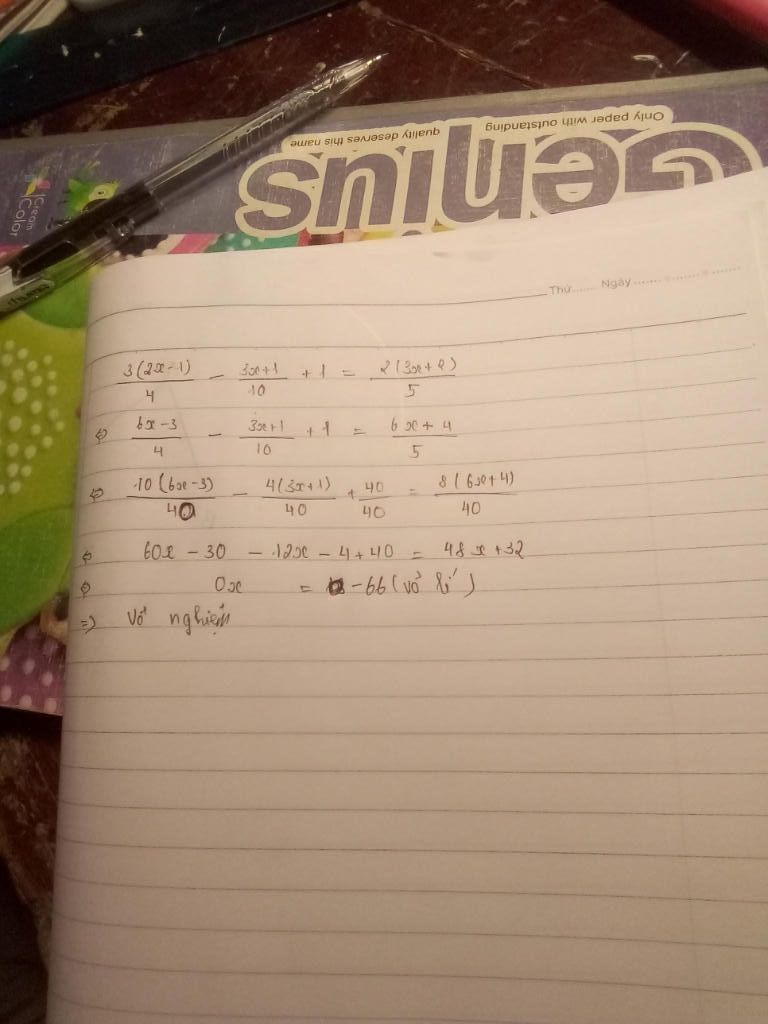 Only paper with outstanding
quality deserves this name
Genius
Cream
Color
Thứ....... Ngày.......
3(2x-1)/4 - 3x+1/10 + 1 = 2(3x+2)/5
⇔ 6x-3/4 - 3x+1/10 + 1 = 6x+4/5
⇔ 10(6x-3)/40 - 4(3x+1)/40 + 40/40 = 8(6x+4)/40
⇔ 60x - 30 - 12x - 4 + 40 = 48x + 32
⇔ 0x = -66 (vô lí)
=> Vô nghiệm